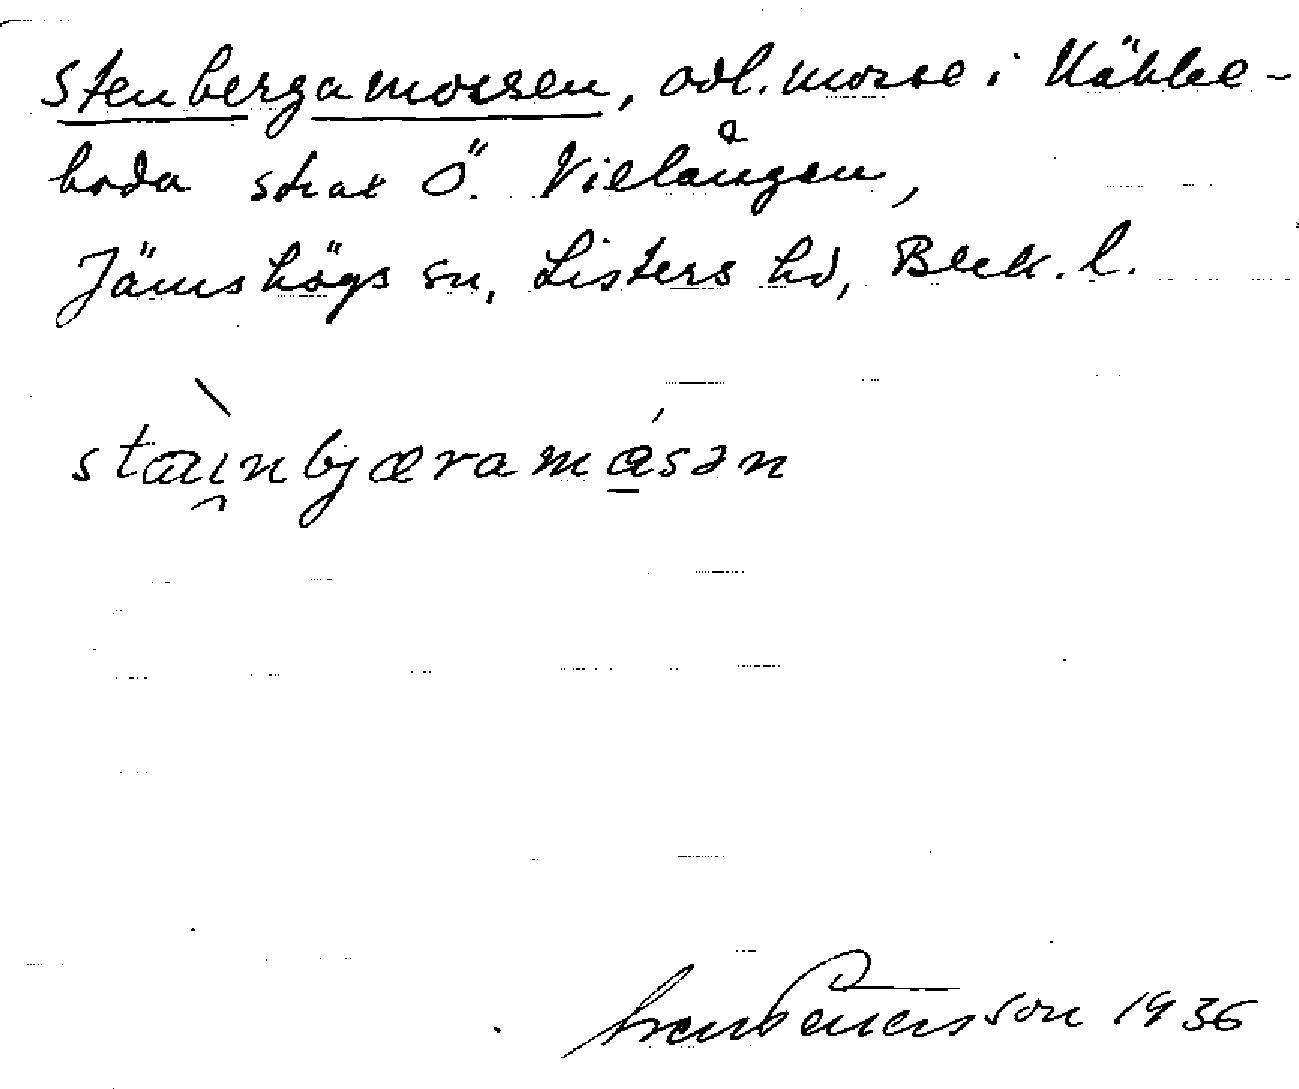 Stenbergamossen, odl. mosse i Käbble-
boda strax Ö. Villången,
Jämshögs sn, Listers hd, Blek. l.
stæi̯nbjæramåsən
1936